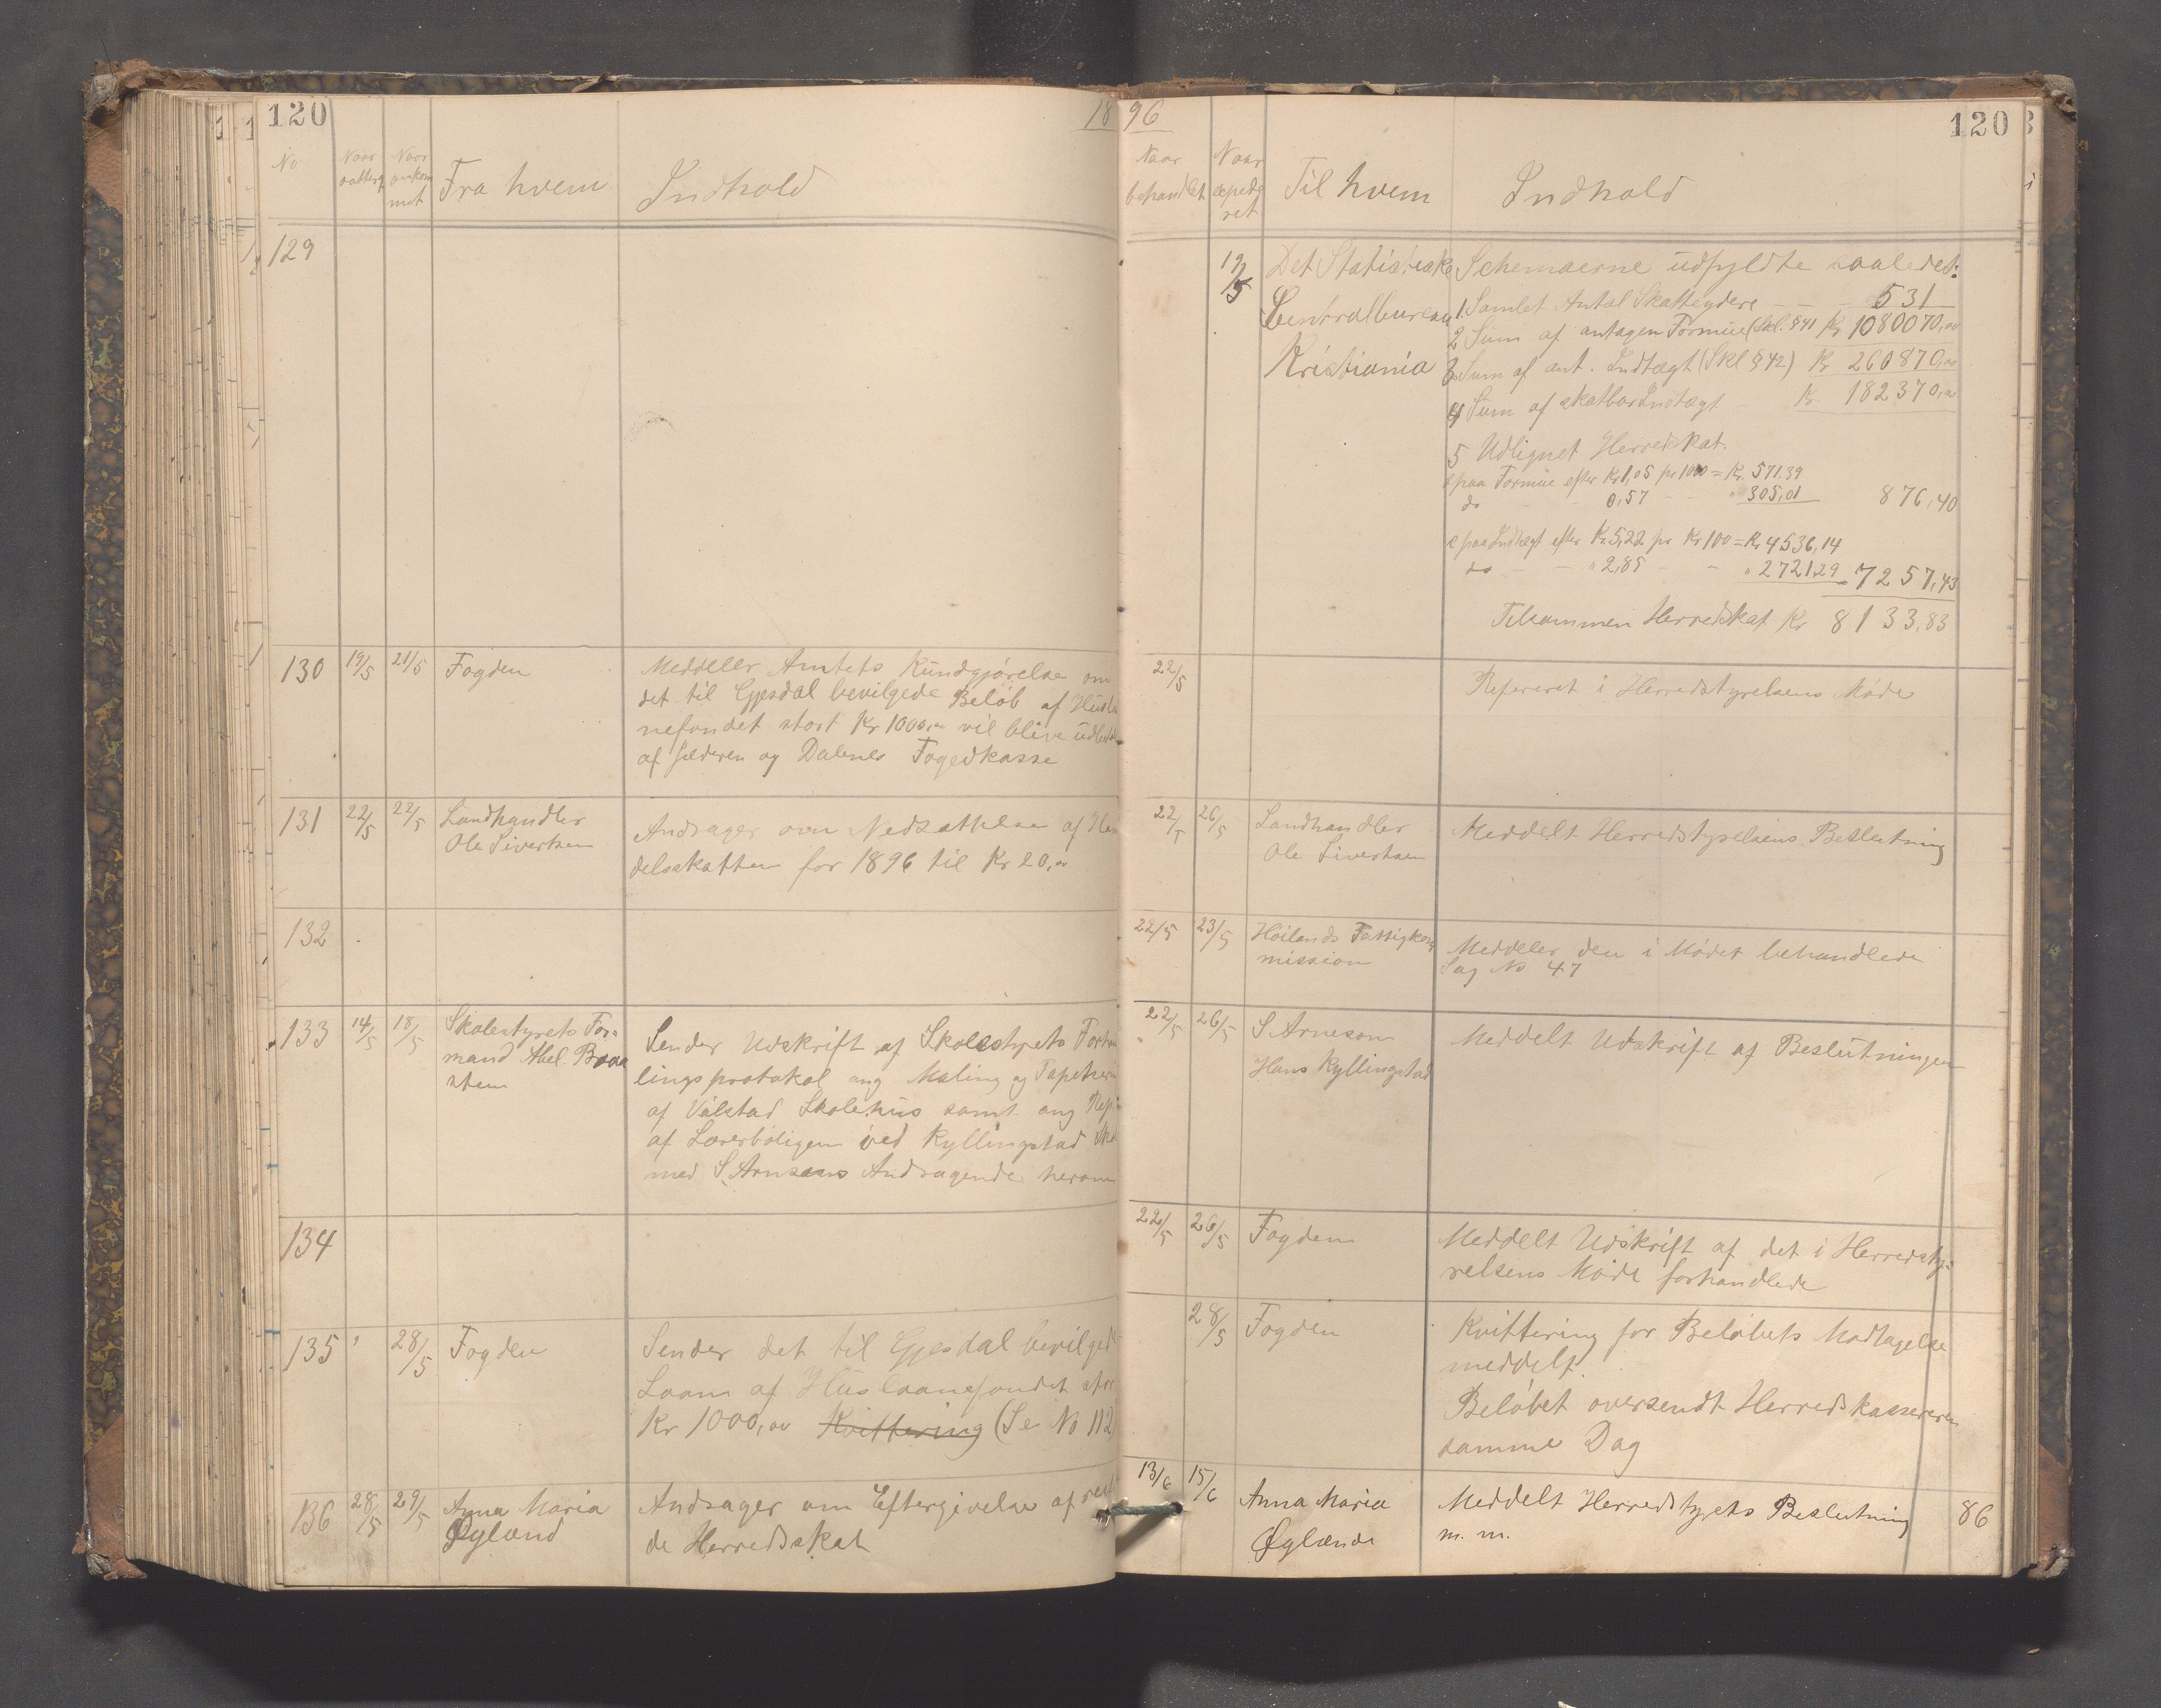 120
1896
120
No
Naar datterf
Naar ankom
met
Fra hvem
Indhold
Naar
behandlet
Naar
exepede
ret
Til hvem
Indhold
129
19/5
Det Statistiske
Centralbureau
Kristiania
Schemaerne udfyldte saaledes:
1. Samlet Antal Skatteydere - - - 531
2 Sum af antagen Formue (Skl. § 41 Kr 1080070,00
3. Sum af ant. Indtægt (Skl § 42) Kr 260870,00
4 Sum af skatbar Indtægt - Kr 182370,00
5 Udlignet Herredskat.
paa Formue efter Kr 1,05 pr 1000 = Kr. 571.39
do - - 0,57 - - " 305,01 876,40
paa Indtægt efter Kr 5,22 pr Kr 100 = Kr 4536,14
do - - " 2,85 - - " 2721,29 7257,43
Tilsammen Herredskat Kr 8133,83
130 19/5 21/5 Fogden
Meddeler Amtets Kundgjørelse om
det til Gjesdal bevilgede Beløb af Huslaa
nefondet stort Kr 1000,00 vil blive udbetalt
af Jæderen og Dalenes Fogedkasse
22/5
Refereret i Herredstyrelsens Møde
131 22/5 22/5 Landhandler
Ole Sivertsen
Andrager om Nedsættelse af Han
delsskatten for 1896 til Kr 20,00
22/5 26/5 Landhandler
Ole Sivertsen
Meddelt Herredstyrelsens Beslutning
132
22/5 23/5 Höilands Fattigkom
mission
Meddeler den i Mødet behandlede
Sag No 47
133 14/5 18/5 Skolestyrets For=
mand Abel Braa
stein
Sender Udskrift af Skolestyrets Forhand
lingsprotokol ang Maling og Tapetsering
af Vålstad Skolehus samt ang Rep.
af Lærerboligen ved Kyllingstad Sko
med S. Arnesens Andragende herom
22/5 26/5 S Arnesen
Hans Kyllingstad
Meddelt Udskrift af Beslutningen
134
22/5 26/5 Fogden
Meddelt Udskrift af det i Herredsty=
relsens Møde forhandlede
135 28/5 Fogden
Sender det til Gjesdal bevilgede
Laan af Huslaanefondet stort
Kr 1000,00 Kvittering (Se No 112
28/5 Fogden
Kvittering for Beløbets Modtagelse
meddelt.
Beløbet oversendt Herredskassereren
samme Dag
136 28/5 29/5 Anna Maria
Øgland
Andrager om Eftergivelse af rest
de Herredsskat
13/6 15/6 Anna Maria
Øglænde
Meddelt Herredstyrets Beslutning
m. m.
86